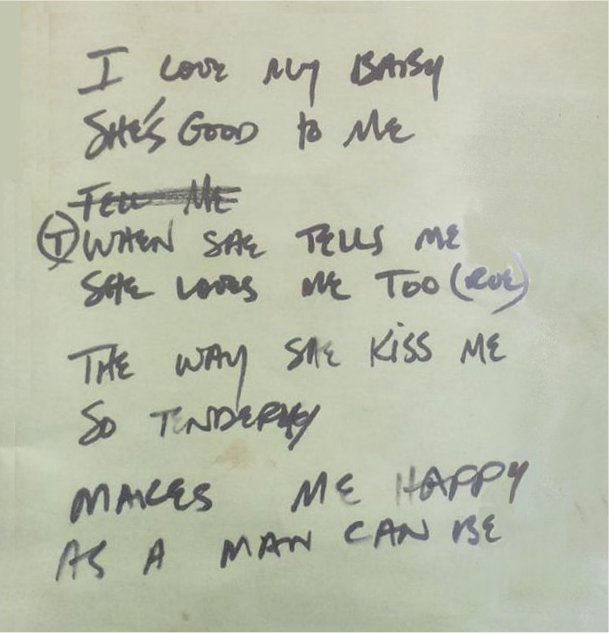 I LOVE MY BABY
SHE'S GOOD to ME
TELL ME
(T) WHEN SHE TELLS ME
SHE LOVES ME TOO (RUE)
THE WAY SHE KISS ME
SO TENDERLY
MAKES ME HAPPY
AS A MAN CAN BE